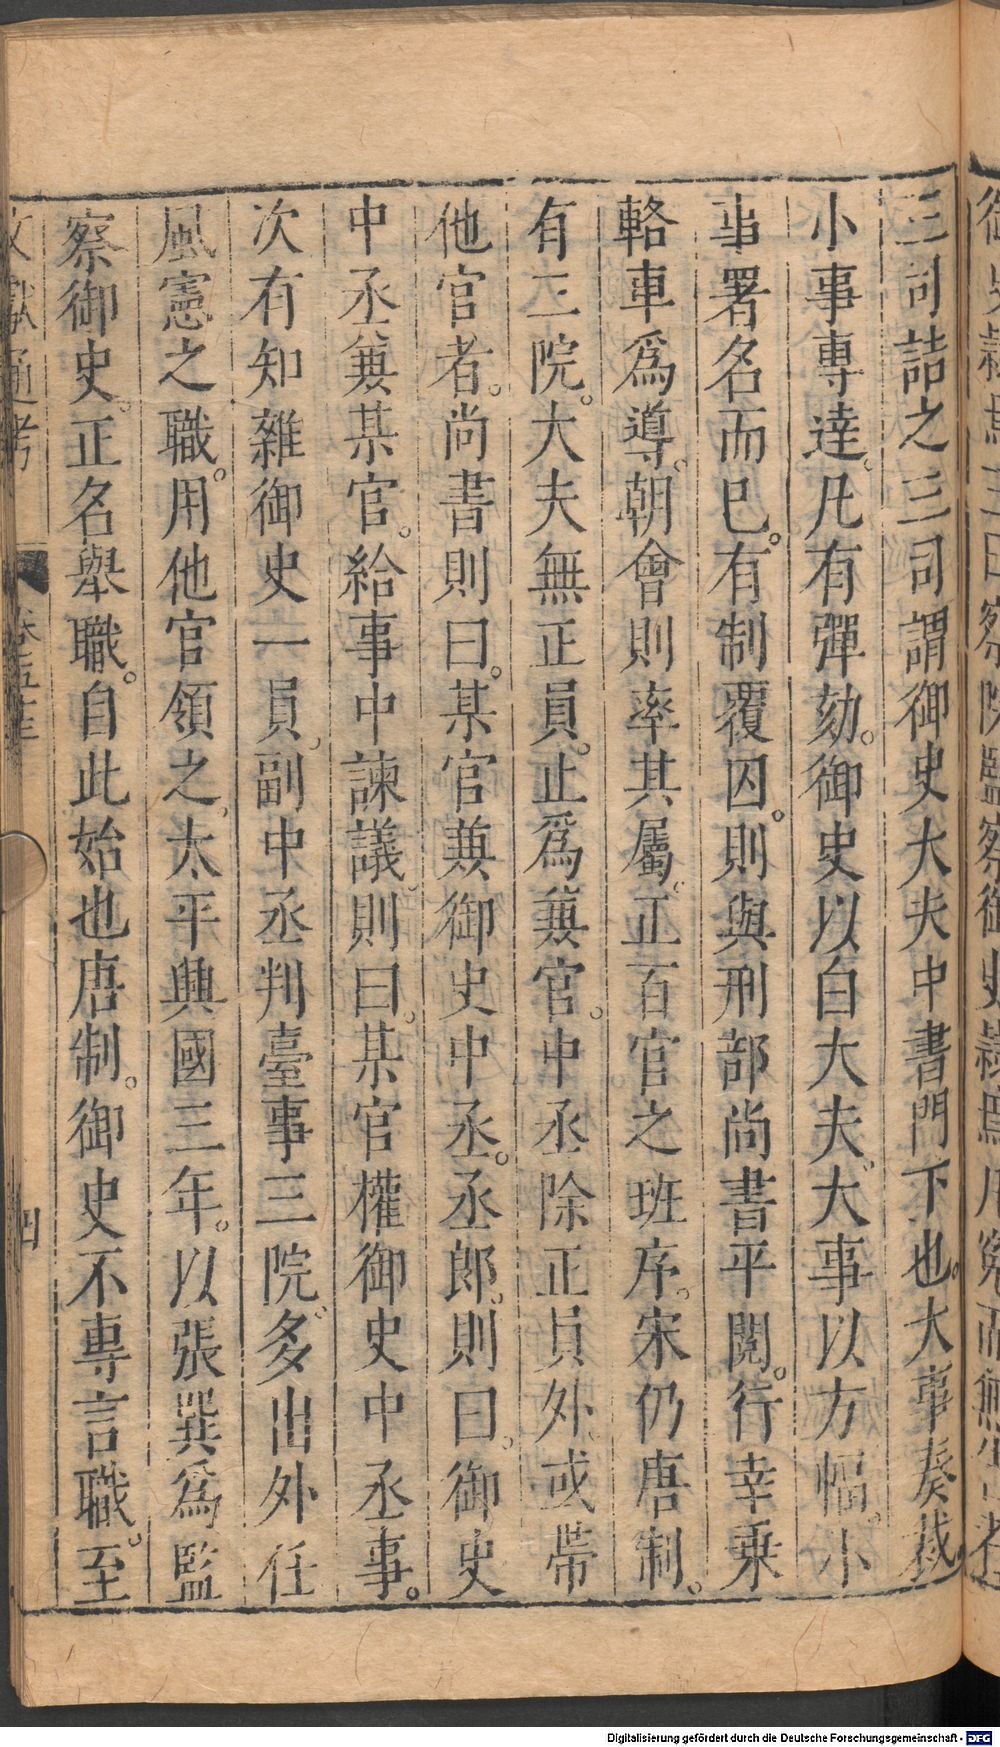 三司詰之三司謂御史大夫中書門下也。大事奏裁
小事專達。凡有彈劾。御史以白大夫。大事以方幅。小
事署名而已。有制覆囚。則與刑部尚書平閱。行幸乘
輅車爲導。朝會則率其屬。正百官之班序。宋仍唐制。
有三院。大夫無正員。止爲兼官。中丞除正員外。或帶
他官者。尚書則曰。某官兼御史中丞。丞郎。則曰。御史
中丞兼某官。給事中諫議。則曰。某官權御史中丞事。
次有知雜御史一員。副中丞判臺事三院。多出外任
風憲之職。用他官領之。太平興國三年。以張巽爲監
察御史。正名舉職。自此始也唐制。御史不專言職。至
文獻通考 卷五十三 四
Digitalisierung gefördert durch die Deutsche Forschungsgemeinschaft - DFG